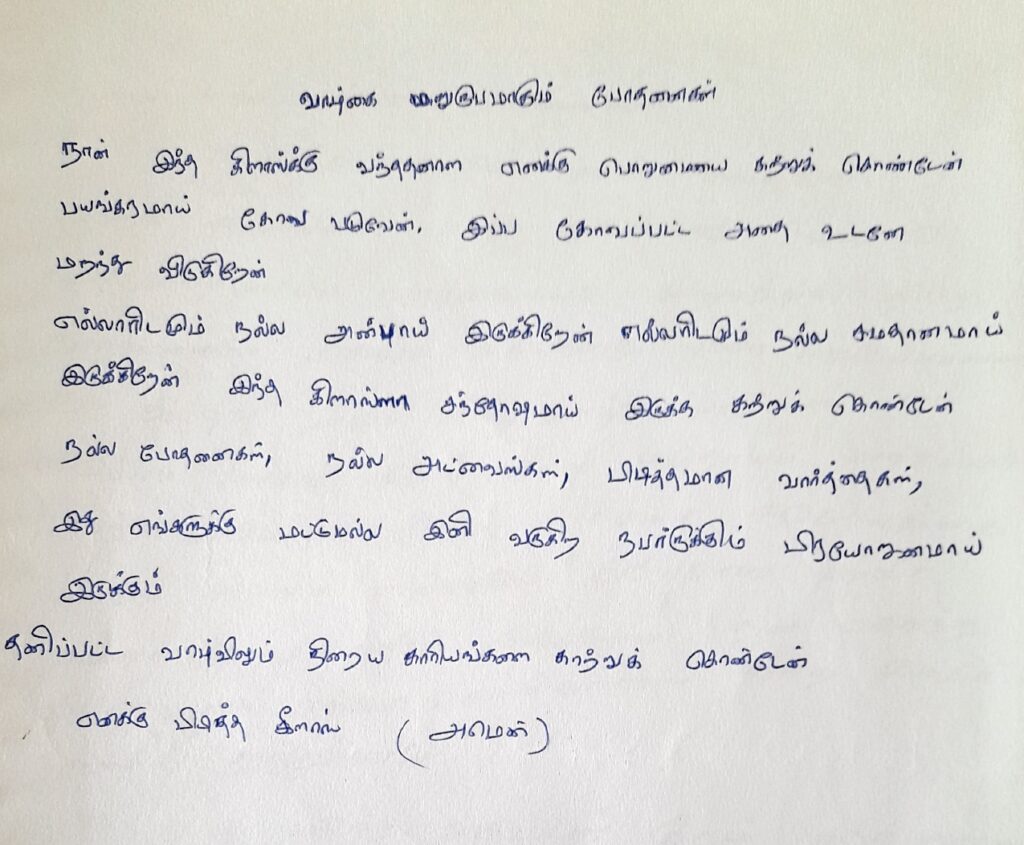 வாழ்கை மறுரூபமாகும் போதனைகள்
நான் இந்த கிளாஸ்க்கு வந்ததனால எனக்கு பொறுமையை கற்றுக் கொண்டேன்
பயங்கரமாய் கோவ படுவேன். இப்ப கோவப்பட்ட அதை உடனே
மறந்து விடுகிறேன்
எல்லாரிடமும் நல்ல அன்பாய் இருக்கிறேன் எல்லாரிடமும் நல்ல சமதானமாய்
இருக்கிறேன் இந்த கிளாஸ்ல சந்தோஷமாய் இருக்க கற்றுக் கொண்டேன்
நல்ல போதனைகள், நல்ல அட்வைஸ்கள், பிடித்தமான வார்த்தைகள்,
இது எங்களுக்கு மட்டுமல்ல இனி வருகிற நபர்க்கும் பிரயோஜனமாய்
இருக்கும்
தனிப்பட்ட வாழ்விலும் நிறைய காரியங்களை காற்றுக் கொண்டேன்
எனக்கு பிடித்த கிளாஸ் (அமென்)